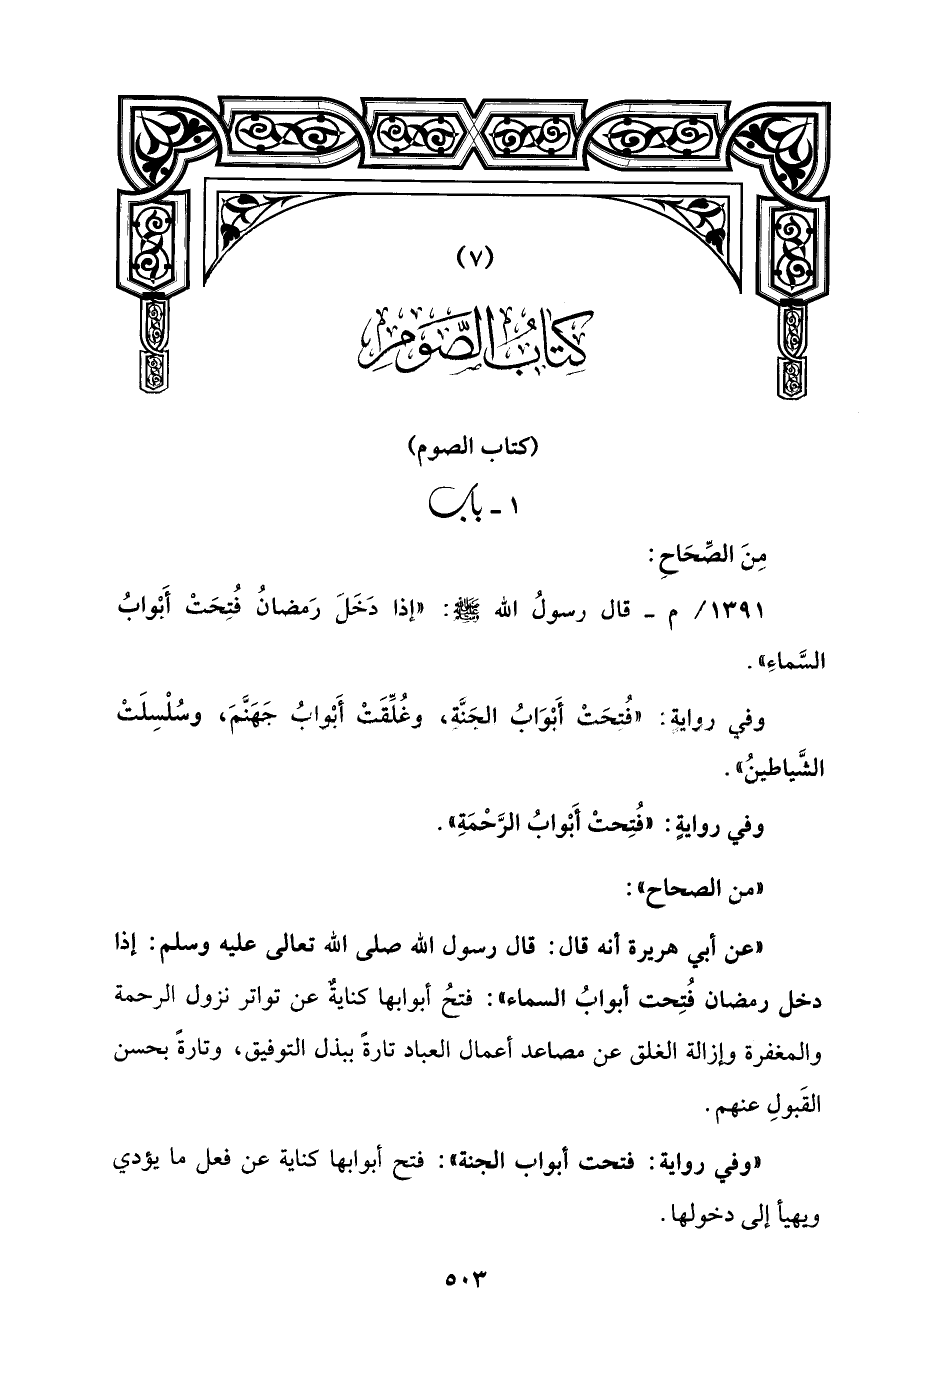 (٧)
كِتَابُ الصَّوْمِ
(كتاب الصوم)
١ - باب
مِنَ الصِّحَاحِ:
١٣٩١/ م - قال رسولُ الله ﷺ: «إذا دَخَلَ رَمضانُ فُتِحَتْ أَبْوابُ
السَّماءِ».
وفي روايةٍ: «فُتِحَتْ أَبْوَابُ الجَنَّةِ، وغُلِّقَتْ أَبْوابُ جَهَنَّمَ، وسُلْسِلَتْ
الشَّياطينُ».
وفي روايةٍ: «فُتِحتْ أَبْوابُ الرَّحْمَةِ».
«من الصحاح»:
«عن أبي هريرة أنه قال: قال رسول الله صلى الله تعالى عليه وسلم: إذا
دخل رمضان فُتِحت أبوابُ السماء»: فتحُ أبوابها كنايةٌ عن تواتر نزول الرحمة
والمغفرة وإزالة الغلق عن مصاعد أعمال العباد تارةً ببذل التوفيق، وتارةً بحسن
القَبولِ عنهم.
«وفي رواية: فتحت أبواب الجنة»: فتح أبوابها كناية عن فعل ما يؤدي
ويهيأ إلى دخولها.
٥٠٣